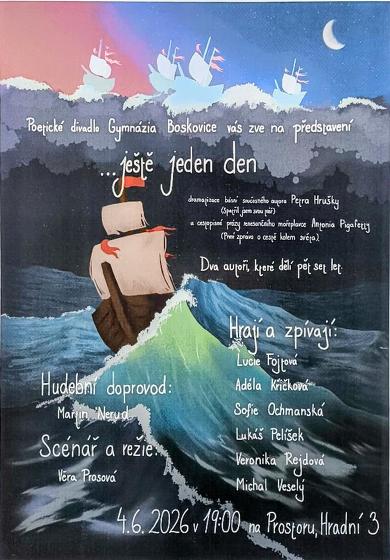 Poetické divadlo Gymnázia Boskovice vás zve na představení
...ještě jeden den
dramatizace básní současného autora Petra Hrušky
(Spatřil jsem svou tvář)
a cestopisné prózy renesančního mořeplavce Antonia Pigafetty
(První zpráva o cestě kolem světa)
Dva autoři, které dělí pět set let.
Hrají a zpívají:
Lucie Fojtová
Adéla Křičková
Sofie Ochmanská
Lukáš Pelíšek
Veronika Rejdová
Michal Veselý
Hudební doprovod:
Martin Nerud
Scénář a režie:
Věra Prosová
4.6.2026 v 19:00 na Prostoru, Hradní 3